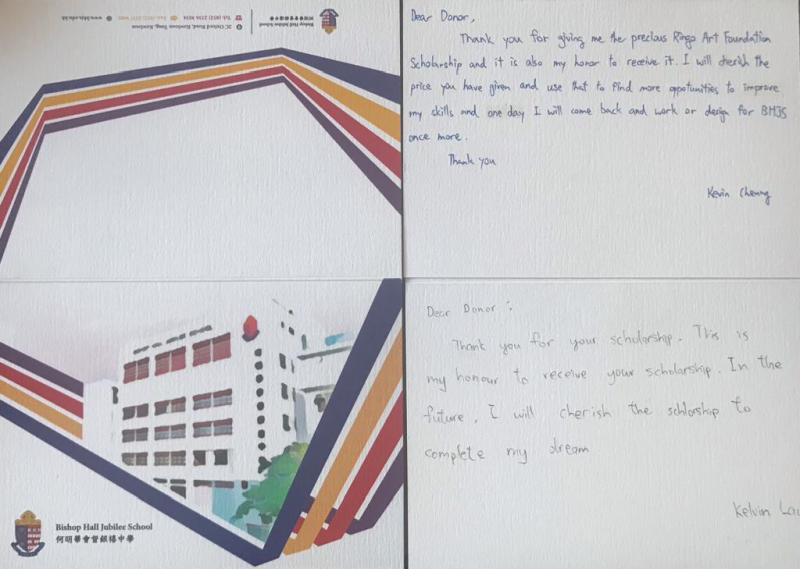 Bishop Hall Jubilee School
何明華會督銀禧中學
2C Oxford Road, Kowloon Tong, Kowloon
Tel: (852) 2336 3034
www.bhjs.edu.hk
Bishop Hall Jubilee School
何明華會督銀禧中學
Dear Donor,
Thank you for giving me the precious Ringo Art Foundation
Scholarship and it is also my honor to receive it. I will cherish the
price you have given and use that to find more oppotunities to improve
my skills and one day I will come back and work or design for BHJS
once more.
Thank you
Kevin Cheung
Dear Donor :
Thank you for your scholarship. This is
my honour to receive your scholarship. In the
future, I will cherish the schlorship to
complete my dream
Kelvin Lau